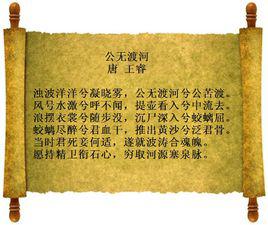 公无渡河
唐 王睿
浊波洋洋兮凝晓雾，公无渡河兮公苦渡。
风号水激兮呼不闻，提壶看入兮中流去。
浪摆衣裳兮随步没，沉尸深入兮蛟螭窟。
蛟螭尽醉兮君血干，推出黄沙兮泛君骨。
当时君死妾何适，遂就波涛合魂魄。
愿持精卫衔石心，穷取河源塞泉脉。